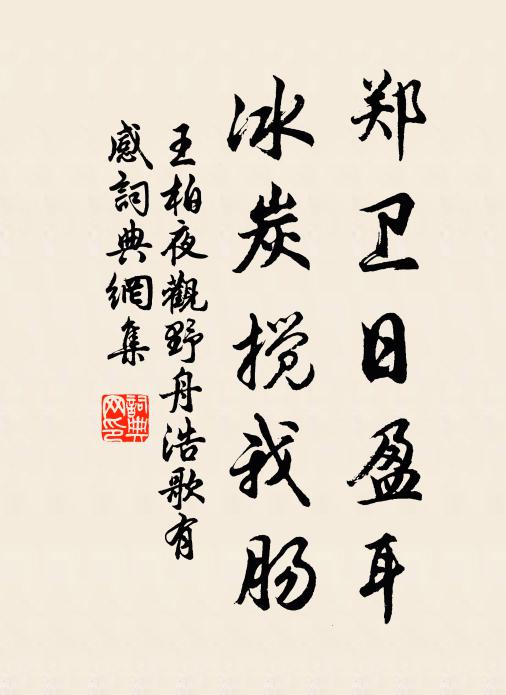 郑卫日盈耳
冰炭搅我肠
王柏夜觀野舟浩歌有
感詞典網集
詞典
网印